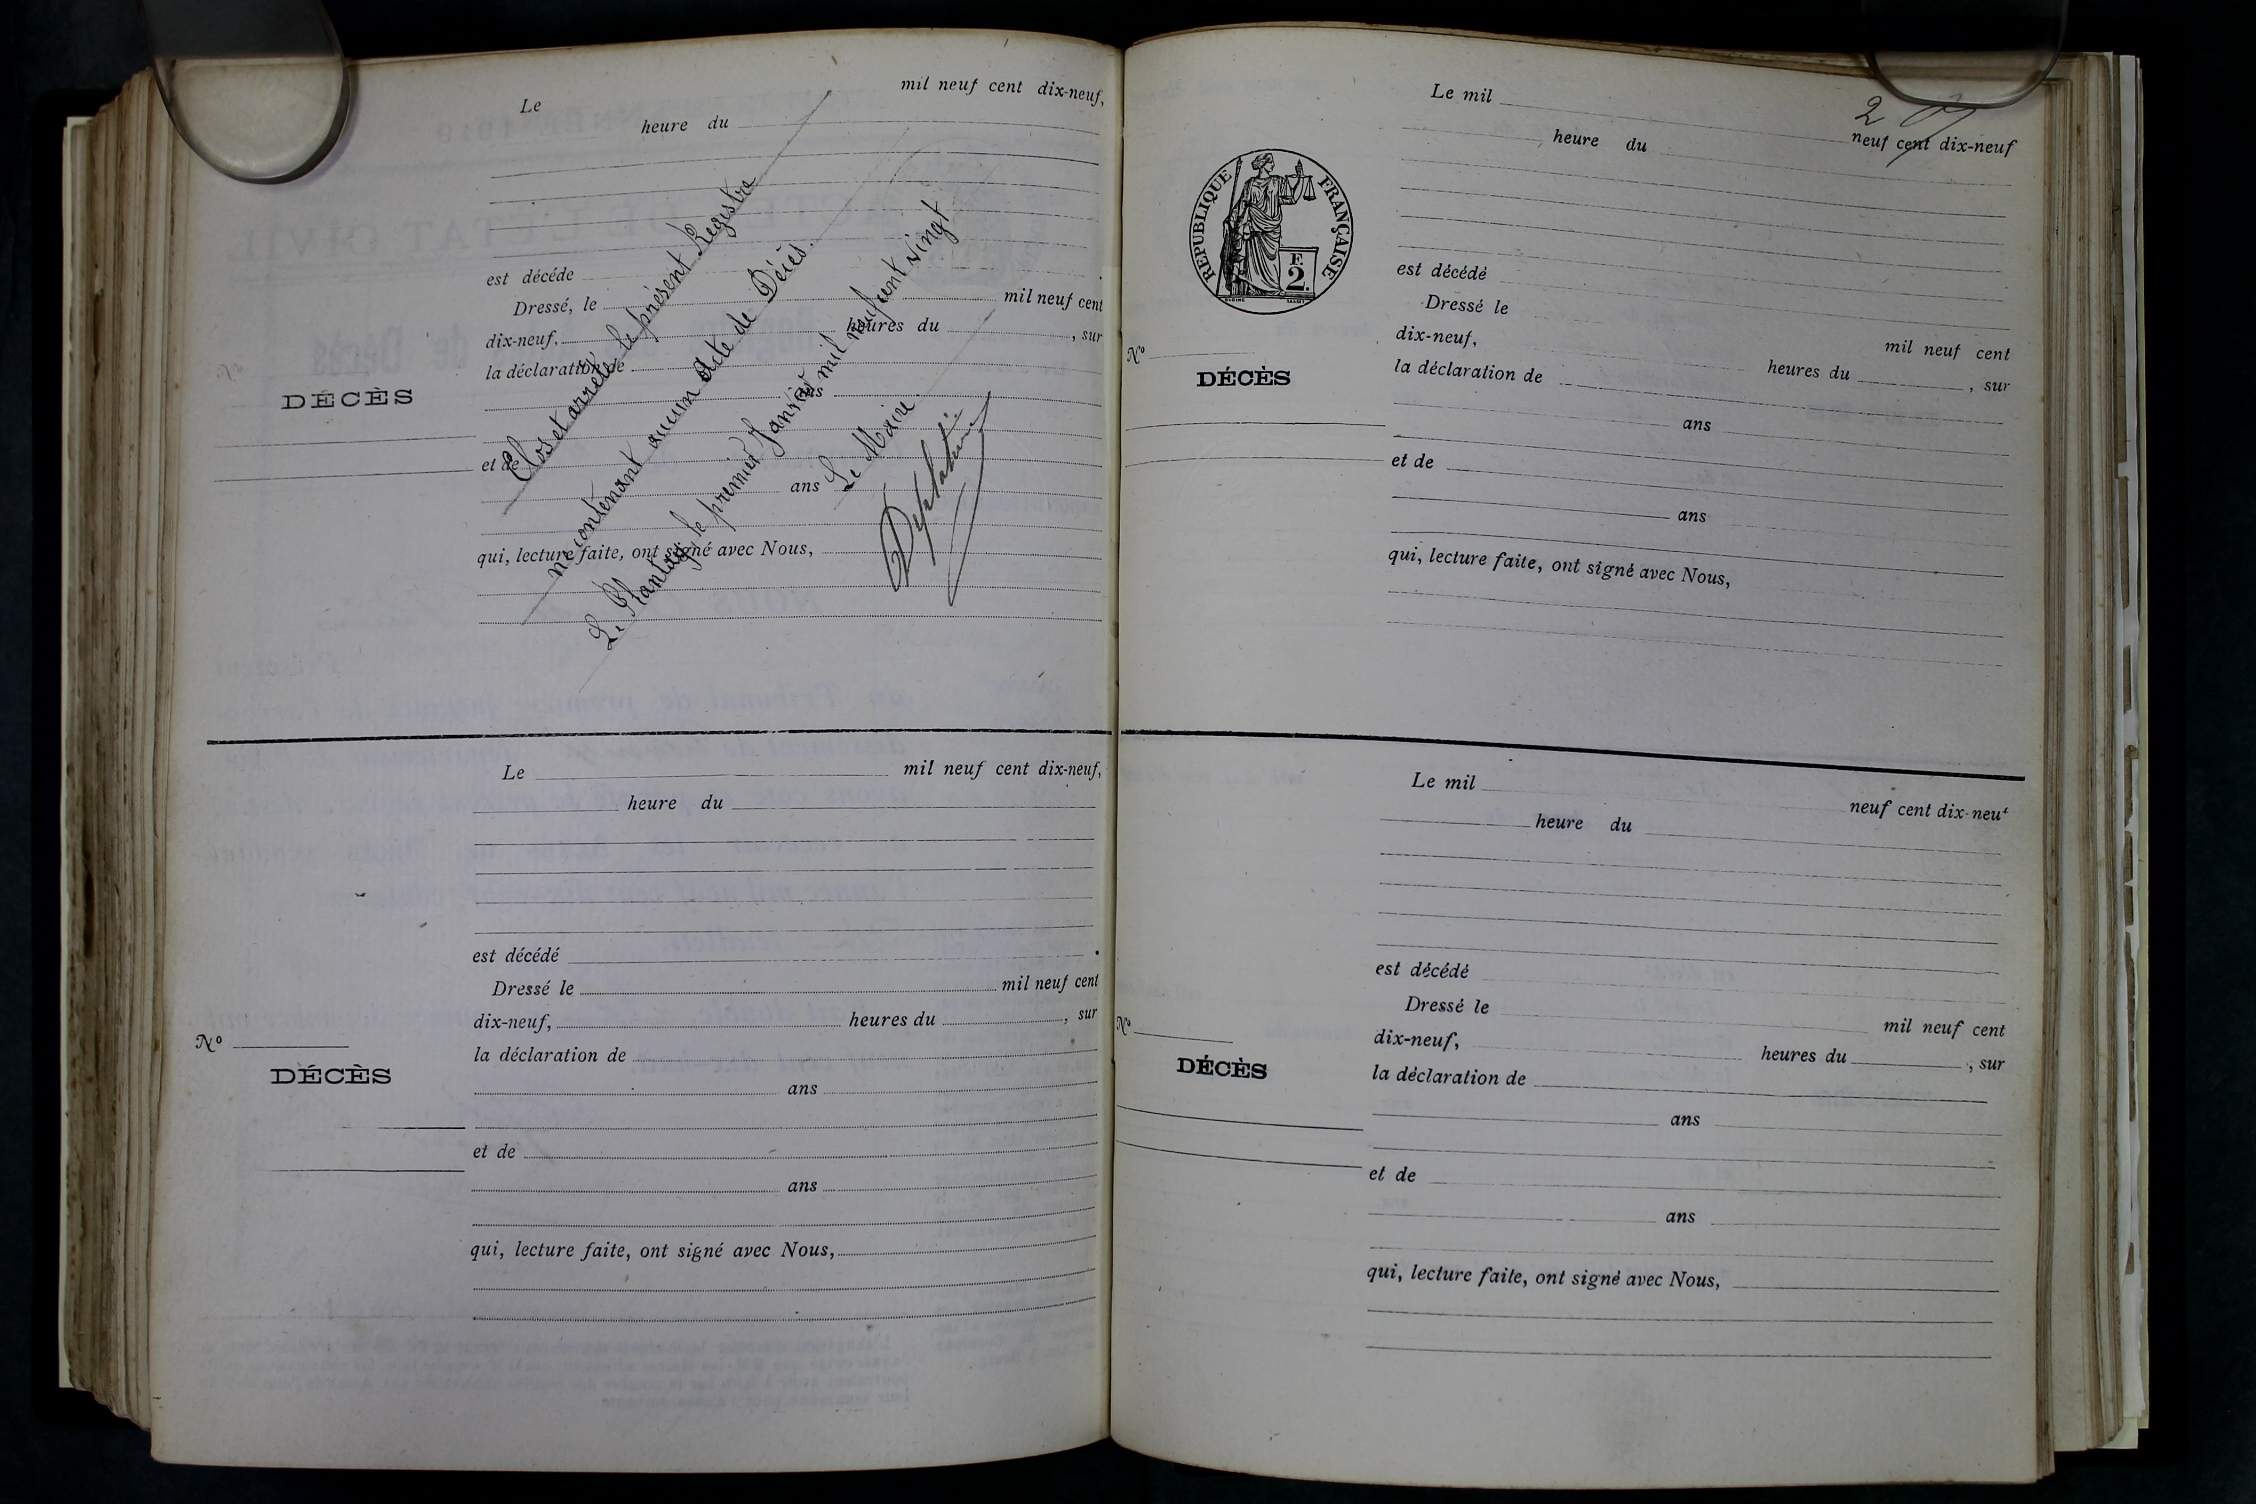 Le mil neuf cent dix-neuf,
heure du
est décédé
Dressé, le mil neuf cent
dix-neuf, heures du , sur
la déclaration de
ans
et de
ans
qui, lecture faite, ont signé avec Nous,
Clos et arrêté le présent Registre
ne contenant aucun acte de Décès.
Le Plantay, le premier Janvier mil neuf cent vingt
Le Maire
DÉCÈS
Le mil neuf cent dix-neuf,
heure du
est décédé
Dressé le mil neuf cent
dix-neuf, heures du , sur
la déclaration de
ans
et de
ans
qui, lecture faite, ont signé avec Nous,
Nº
DÉCÈS
2
Le mil neuf cent dix-neuf
heure du
RÉPUBLIQUE FRANÇAISE
F.
2.
est décédé
Dressé le mil neuf cent
dix-neuf, heures du , sur
la déclaration de
ans
et de
ans
qui, lecture faite, ont signé avec Nous,
Nº
DÉCÈS
Le mil neuf cent dix-neuf
heure du
est décédé
Dressé le mil neuf cent
dix-neuf, heures du , sur
la déclaration de
ans
et de
ans
qui, lecture faite, ont signé avec Nous,
Nº
DÉCÈS